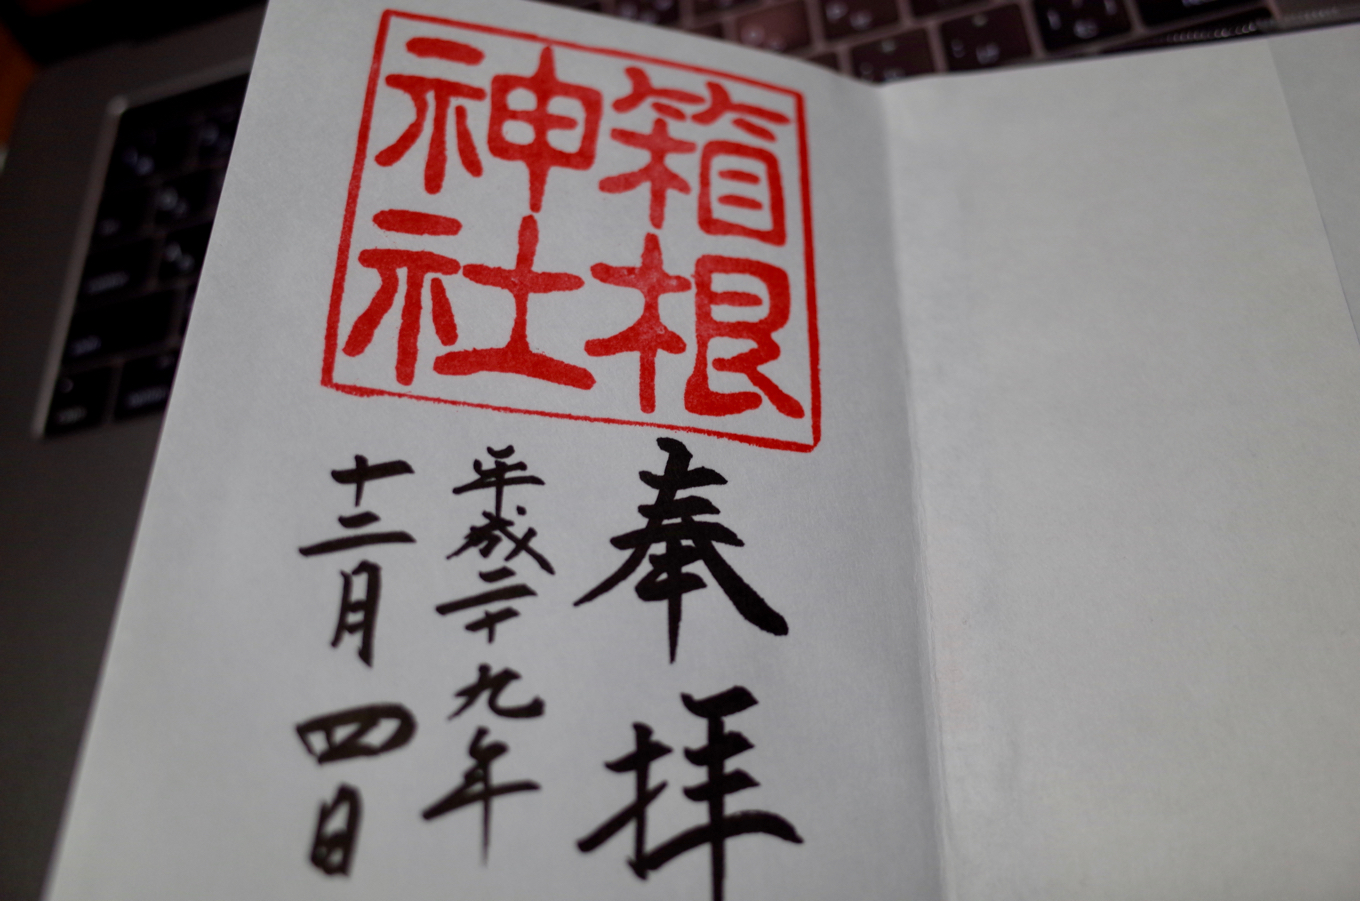 箱根
神社
奉拝
平成二十九年
十二月四日